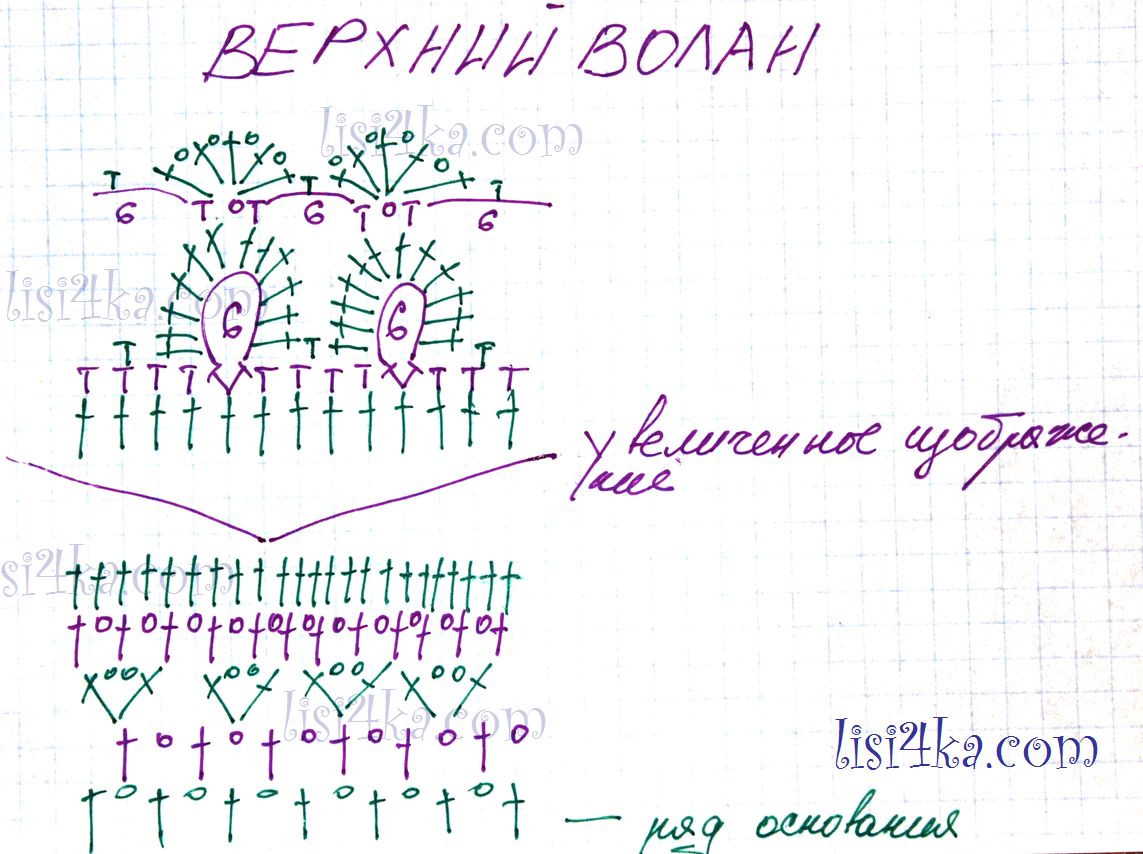 ВЕРХНИЙ ВОЛАН
lisi4ka.com
6 6 6
lisi4ka.com
6 6
увеличенное изображе-
ние
si4ka.com
lisi4ka.com
lisi4ka.com
— ряд основания